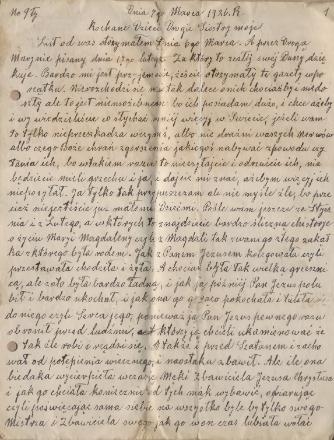 No 9ty Dnia 7go Marca 1926. R. 1
Kochane Dzieci Drogie Siostry moje
List od was otrzymałem Dnia 6go Marca. A przez Droga
Marynie pisany dnia 17go lutego. Za który to realij swej Panij dzię
kuje. Bardzo mi jest przyjemnie, żeście otrzymały te gazety wpo
rządku. Nierozchodzi nie ma tak dalece o nich chociażby niedo
szły ale to jest niemożebność bo ich posiadam dużo, i chcę ażeby
i wy wiedzieliście co słychać na tej więcej w Świecie, jeżeli wam
to tylko nieprzeszkadza wczymś, albo nie drażni waszych Nerwów
albo czego Boże chroń zgorszenia jakiegoś nabywać zpowodu czy
tania ich, bo wtakiem razie to nieczytajcie i odrzućcie ich, nie
będziecie mieli grzechu i ja, a dajcie mi znać, ażebym więcej ich
nieposyłał. Ja tylko tak przypuszczam ale nie myślę źle, bo prze
cież niejesteście już małomi Dziećmi. Poślę wam jeszcze ze Stycz
nia i z Lutego, a wktórych to znajdziecie bardzo śliczną chistorję
o życiu Maryi Magdaleny czyli z Magdali tak zwanego tego zakąt
ka zktórego była rodem. Jak z Panem Jezusem kolegowała czyli
przestawała chodziła i żyła. A chociaż była tak wielką grzeszni
cą, ale zato była bardzo ładna, i jak ją później Pan Jezus polu
bił i bardzo ukochał, i jak ona go gorąco pokochała i tuliła się
do niego czyli Serca jego, ponieważ ją Pan Jezus pewnego razu
obronił przed ludzmi, którzy ją chcieli ukamienować że
tak źle robi i rządzi się. A także i przed Szatanem i zacho
wał od potępienia wiecznego, i naostaku zbawił. Ale ile ona
biedaka wycierpiała wczasie Męki Zbawiciela Jezusa Chrystusa
i jak go chciała koniecznie od tych mąk wybawić, ofiarując
czyli poświęcając sama siebie na wszystko byle by tylko swego
Mistrza i Zbawiciela swego jak go wonczas lubiała wołać